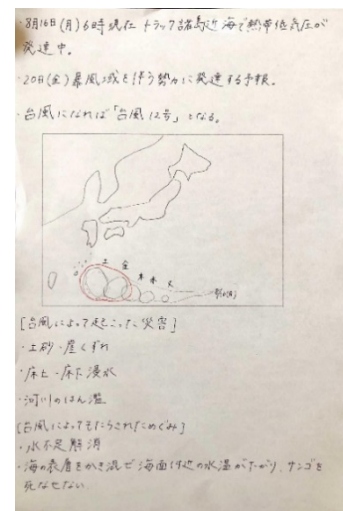 ・8月16日(月)6時現在 トラック諸島近海で熱帯低気圧が
発達中。
・20日(金)暴風域を伴う勢力に発達する予報。
・台風になれば「台風12号」となる。
土 金 木 水 火
[台風によって起こった災害]
・土砂・崖くずれ
・床上・床下浸水
・河川のはん濫
[台風によってもたらされためぐみ]
・水不足解消
・海の表層をかき混ぜ海面付近の水温が下がり、サンゴを
死なせない